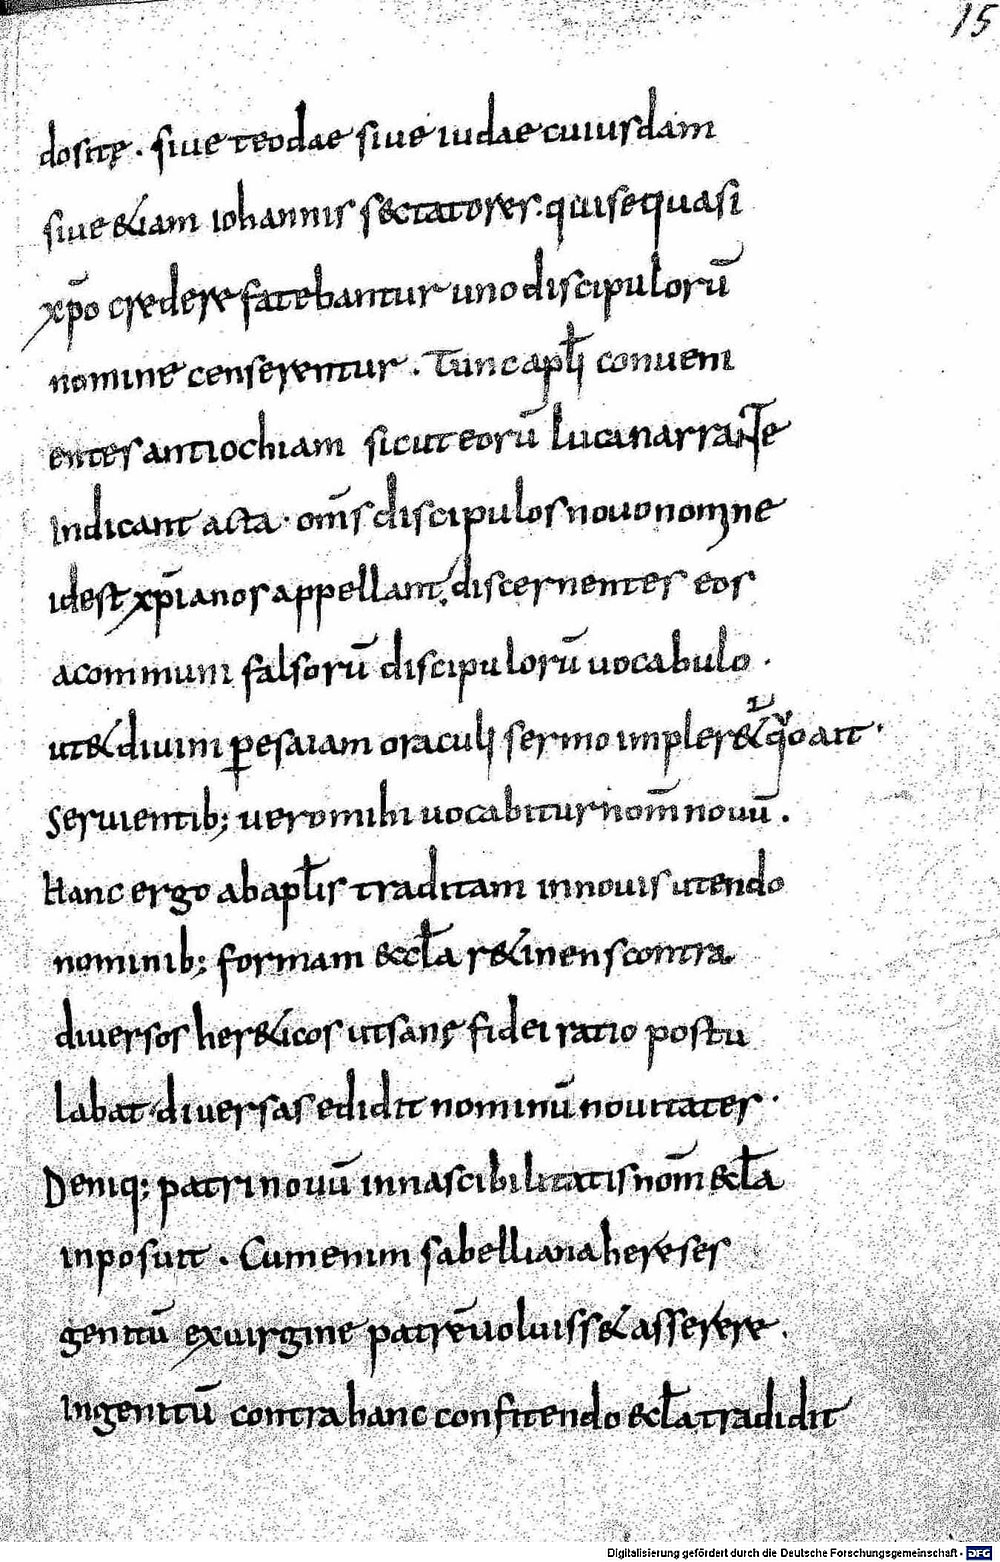 15
dositę. siue teodae siue iudae cuiusdam
siue &iam iohannis sectatores. qui se quasi
xp̄o credere fatebantur uno discipulorū
nomine censerentur. Tunc apłi conueni
entes antiochiam sicut eorū luca narrante
Indicant acta. om̄s discipulos nouo nomine
id est xp̄ianos appellant, discernentes eos
a communi falsorū discipulorū uocabulo.
ut & diuini ꝑ esaiam oraculi sermo impler& quo ait.
Seruientib; uero mihi uocabitur nom̄ nouū.
Hanc ergo ab apłis traditam in nouis utendo
nominib; formam eccła r&inens contra
diuersos her&icos ut sanę fidei ratio postu
labat diuersas edidit nominū nouitates.
Deniq; patri nouū innascibilitatis nom̄ &cła
inposuit. Cum enim sabelliana hereses
genitū ex uirgine patrē uoluiss& asserere.
Ingenitū contra hanc confitendo &cła tradidit
Digitalisierung gefördert durch die Deutsche Forschungsgemeinschaft - DFG